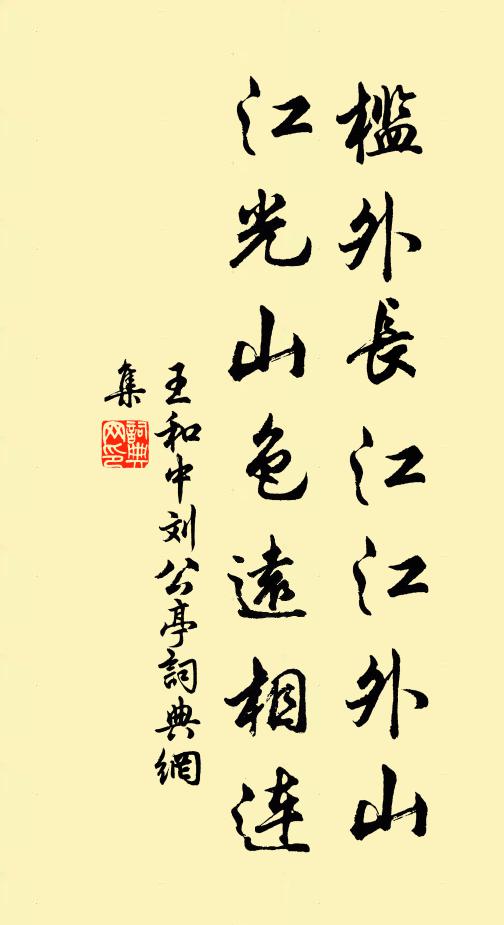 檻外長江江外山
江光山色遠相連
王和中刘公亭詞典網
集
詞典
网印